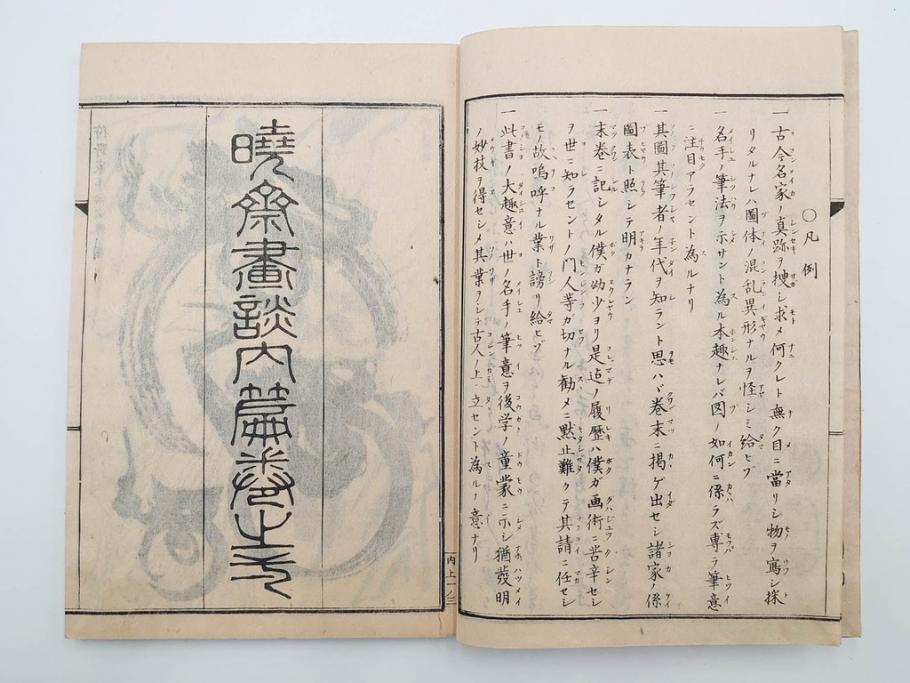 〇凡例
一古今名家ノ真跡ヲ捜シ求メ何クレト無ク目ニ當リシ物ヲ寫シ採
リタルナレハ圖体ノ混乱異形ナルヲ怪シミ給ヒゾ
一名手ノ筆法ヲ示サント為ル本趣ナレバ図ノ如何ニ係ラズ専ラ筆意
ニ注目アラセント為ルナリ
一其圖其筆者ノ年代ヲ知ラント思ハヾ巻末ニ掲ゲ出セシ諸家ノ係
圖表ト照シテ明カナラン
一末巻ニ記シタル僕ガ幼少ヨリ是迠ノ履歴ハ僕ガ画術ニ苦辛セシ
ヲ世ニ知ラセントノ門人等ガ切ナル勧メニ黙止難クテ其請ニ任セシ
モノ故嗚呼ナル業ト謗リ給ヒゾ
一此書ノ大趣意ハ世ノ名手ノ筆意ヲ後学ノ童蒙ニ示シ猶發明
ノ妙技ヲ得セシメ其業ヲシテ古人ノ上ニ立セント為ルノ意ナリ
内上一ノ三
曉齋畫談内篇巻之上